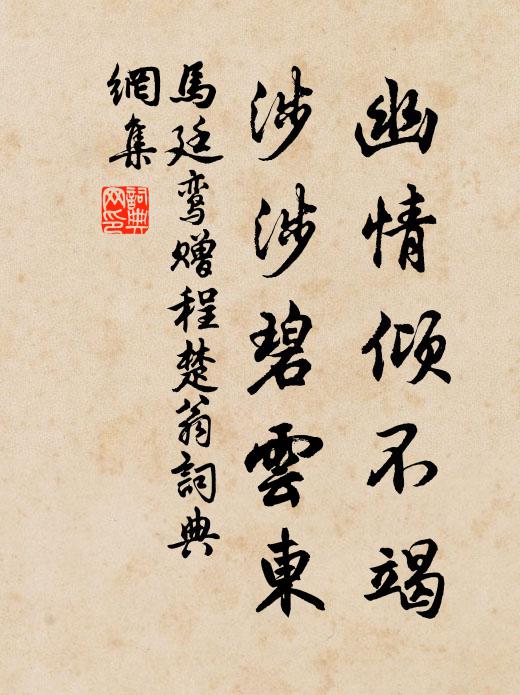 幽情倾不竭
涉涉碧雲東
馬廷鸾赠程楚翁詞典
網集
詞典
网印